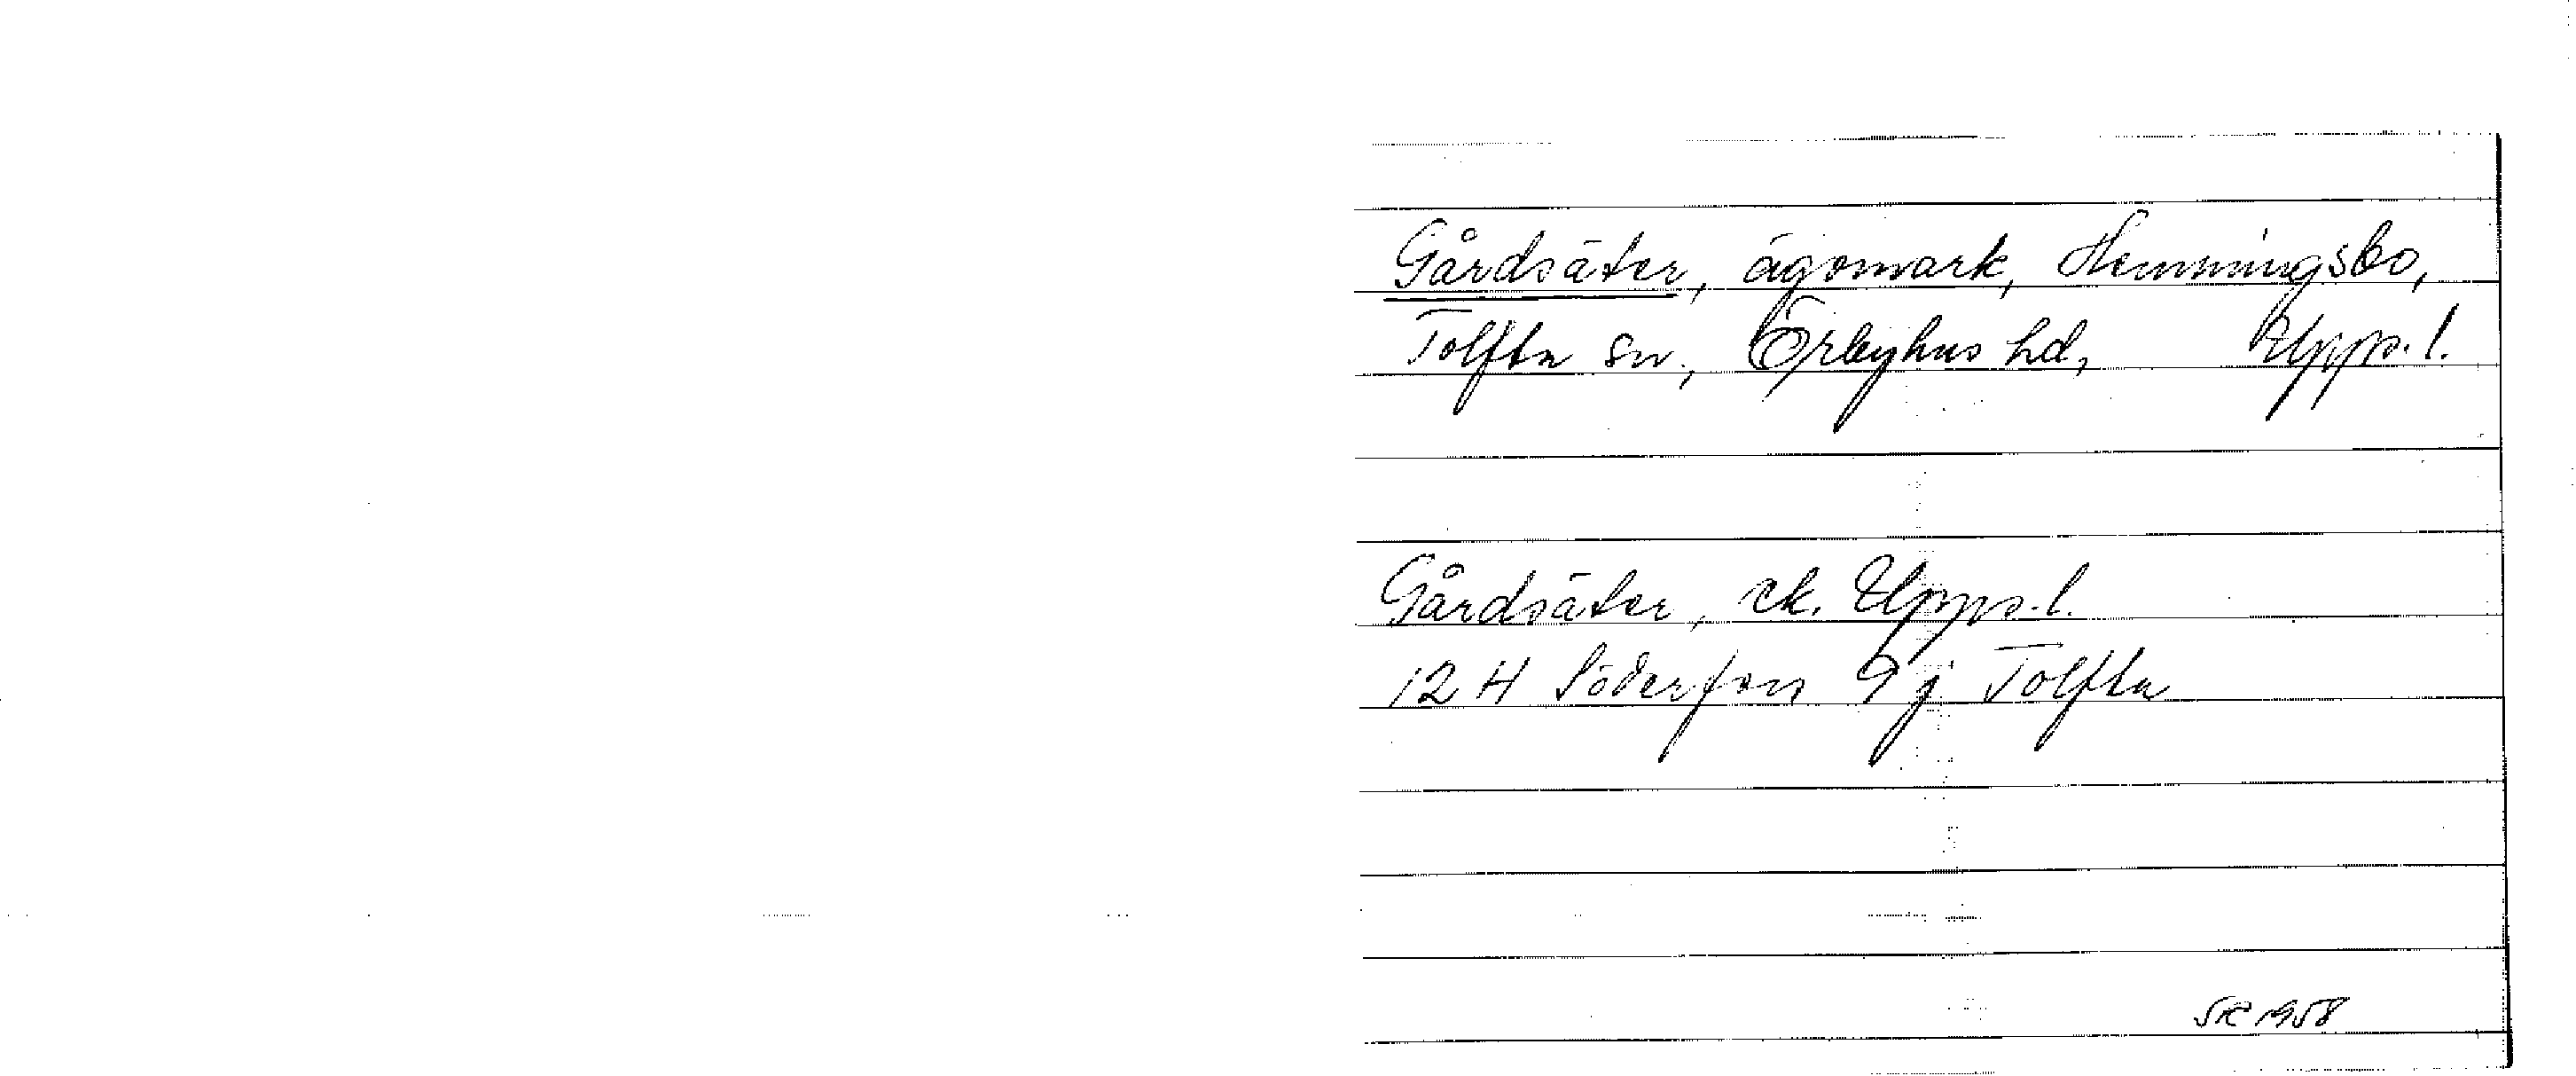 Gårdsäter, ägomark, Hemmingsbo,
Tolfta sn., Örbyhus hd, Upps. l.
Gårdsäter, ek. Upps. l.
12 H Söderfors 9 j Tolfta
SR 1958